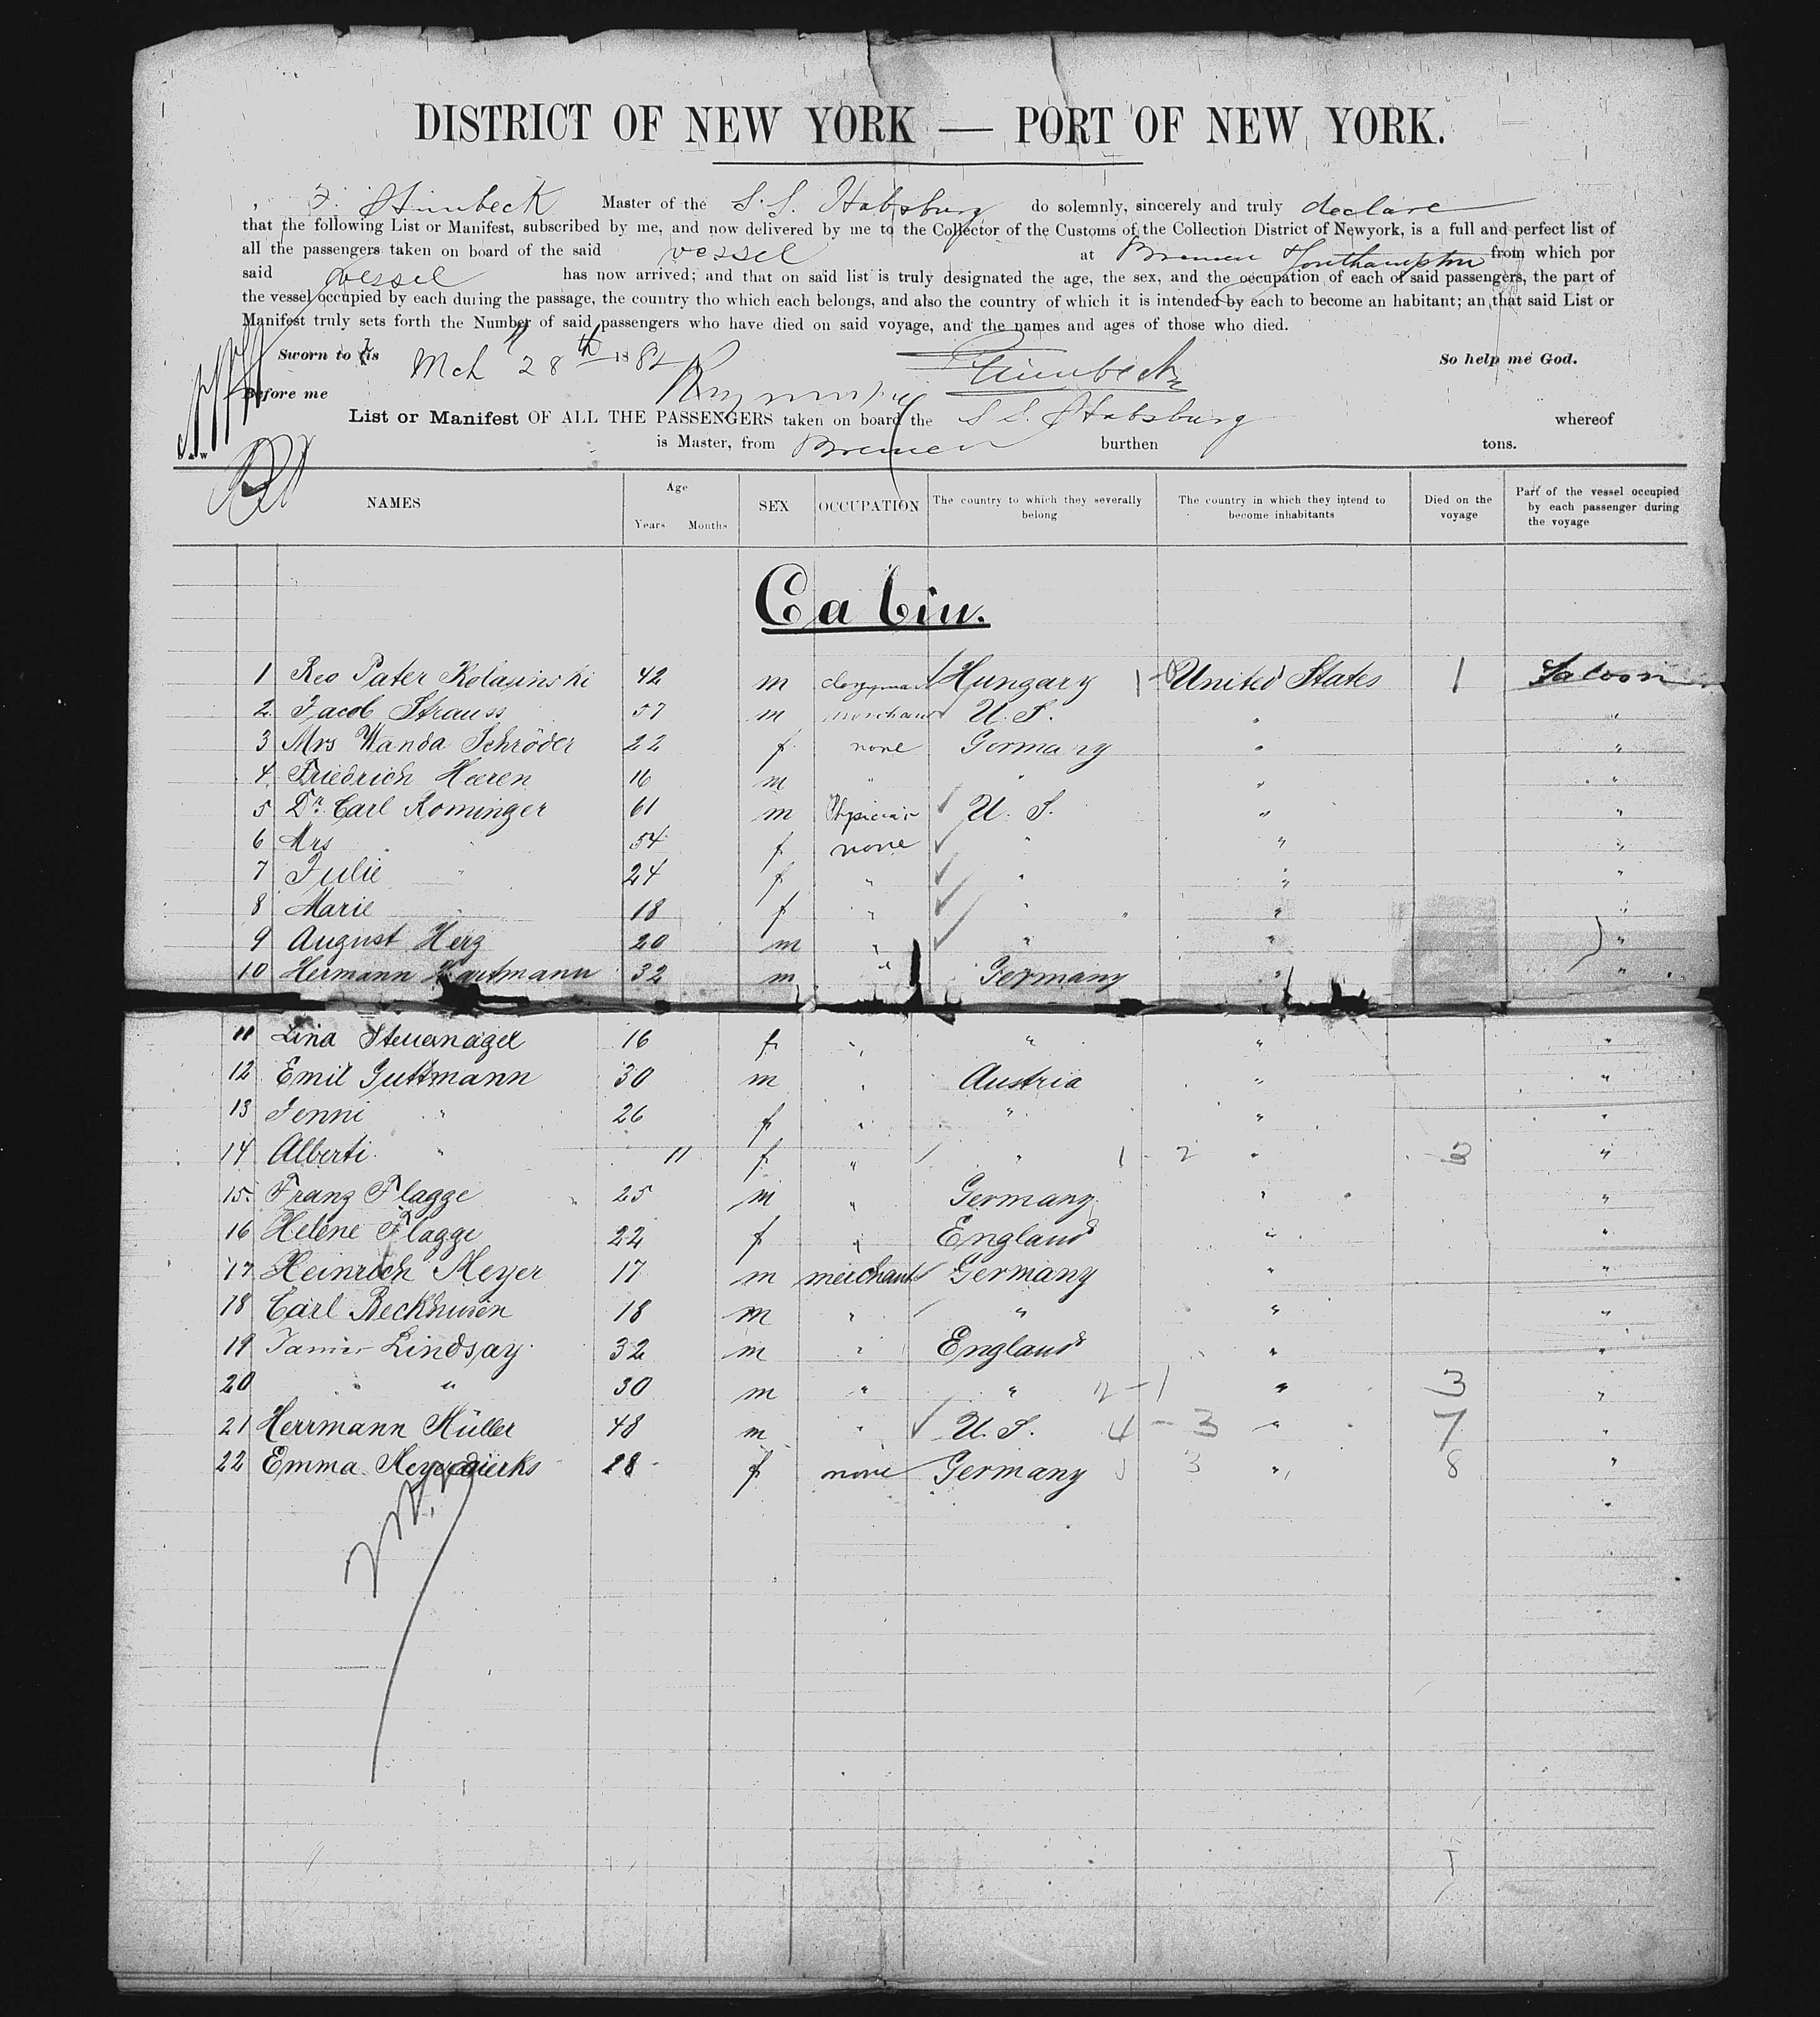 DISTRICT OF NEW YORK — PORT OF NEW YORK.
Master of the S.S. Habsburg do solemnly, sincerely and truly declare
that the following List or Manifest, subscribed by me, and now delivered by me to the Collector of the Customs of the Collection District of Newyork, is a full and perfect list of
all the passengers taken on board of the said vessel at Bremen Southampton from which por
said vessel has now arrived; and that on said list is truly designated the age, the sex, and the occupation of each of said passengers, the part of
the vessel occupied by each during the passage, the country tho which each belongs, and also the country of which it is intended by each to become an habitant; an that said List or
Manifest truly sets forth the Number of said passengers who have died on said voyage, and the names and ages of those who died.
Sworn to Mch 28th 188 So help me God.
Before me
List or Manifest OF ALL THE PASSENGERS taken on board the S S. Habsburg whereof
is Master, from Bremen burthen tons.
NAMES Age Years Months SEX OCCUPATION The country to which they severally belong The country in which they intend to become inhabitants Died on the voyage Part of the vessel occupied by each passenger during the voyage
Cabin.
1 Rev Pater Kolasinski 42 m clergyman Hungary 1 United States 1 Saloon
2 Jacob Strauss 57 m merchant U.S. " "
3 Mrs Wanda Schröder 22 f none Germany " "
4 Friedrich Heeren 16 m " " " "
5 Dr. Carl Rominger 61 m Physician U. S. " "
6 Mrs " 54 f none " " "
7 Julie " 24 f " " " "
8 Marie " 18 f " " " "
9 August Herz 20 m " " " "
10 Hermann 32 m " Germany " "
11 Lina Steuernagel 16 f " " " "
12 Emil Guttmann 30 m " Austria " "
13 Jenni " 26 f " " " "
14 Alberti " 11 f " " 1 - 2 " 3 "
15 Franz Flagge 25 m " Germany " "
16 Helene Flagge 22 f " England " "
17 Heinrich Meyer 17 m merchant Germany " "
18 Carl Beckhusen 18 m " " " "
19 Lindsay 32 m " England " "
20 " " 30 m " " 2 - 1 " 3 "
21 Herrmann Müller 48 m " U.S. 4 - 3 " 7 "
22 Emma 28 f none Germany 3 " 8 "